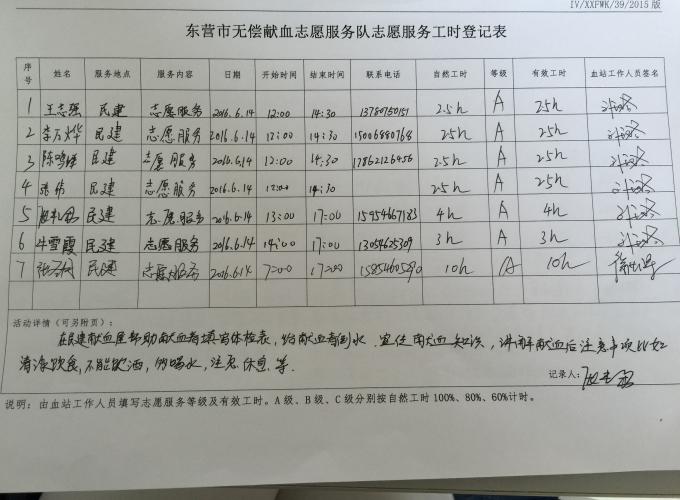 IV/XXFWK/39/2015 版
东营市无偿献血志愿服务队志愿服务工时登记表
序号 姓名 服务地点 服务内容 日期 开始时间 结束时间 联系电话 自然工时 等级 有效工时 血站工作人员签名
1 王志强 民建 志愿服务 2016.6.14 12:00 14:30 2.5h A 2.5h
2 李万烨 民建 志愿服务 2016.6.14 12:00 14:30 15006880768 2.5h A 2.5h
3 民建 志愿服务 2016.6.14 12:00 14:30 17862126456 2.5h A 2.5h
4 张伟 民建 志愿服务 2016.6.14 12:00 14:30 2.5h A 2.5h
5 民建 志愿服务 2016.6.14 13:00 17:00 15954667183 4h A 4h
6 牛雪霞 民建 志愿服务 2016.6.14 14:00 17:00 13054625309 3h A 3h
7 民建 志愿服务 2016.6.14 7:00 17:00 10h A 10h
活动详情（可另附页）：
在民建献血屋帮助献血者填写体检表，给献血者倒水，宣传献血知识，讲解献血后注意事项比如
清淡饮食，不能饮酒，多喝水，注意休息等.
记录人：
说明：由血站工作人员填写志愿服务等级及有效工时。A 级、B 级、C 级分别按自然工时 100%、80%、60%计时。